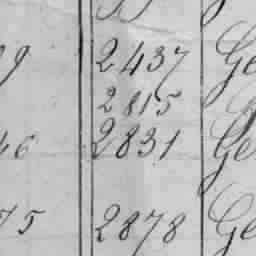 29 2437 Ge
2815
46 2831 Ge
75 2878 Ge